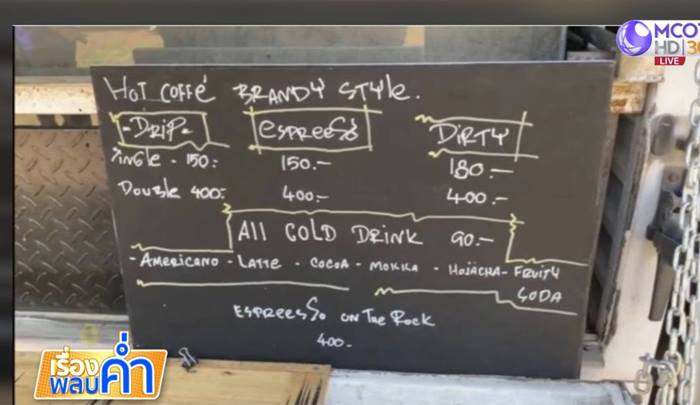 MCOT
HD 30
LIVE
HOT COFFé BRANDY STYLE.
-DRIP- esPREESSo DiRTY
Single - 150.- 150.- 180.-
Double 400.- 400.- 400.-
All COLD DRINK 90.-
- AMERICANO - LATTE - COCOA - MOKKA - HOJACHA - FRUITY
SODA
ESPREESSo ON The Rock
400.-
เรื่อง
พลบ
ค่ำ